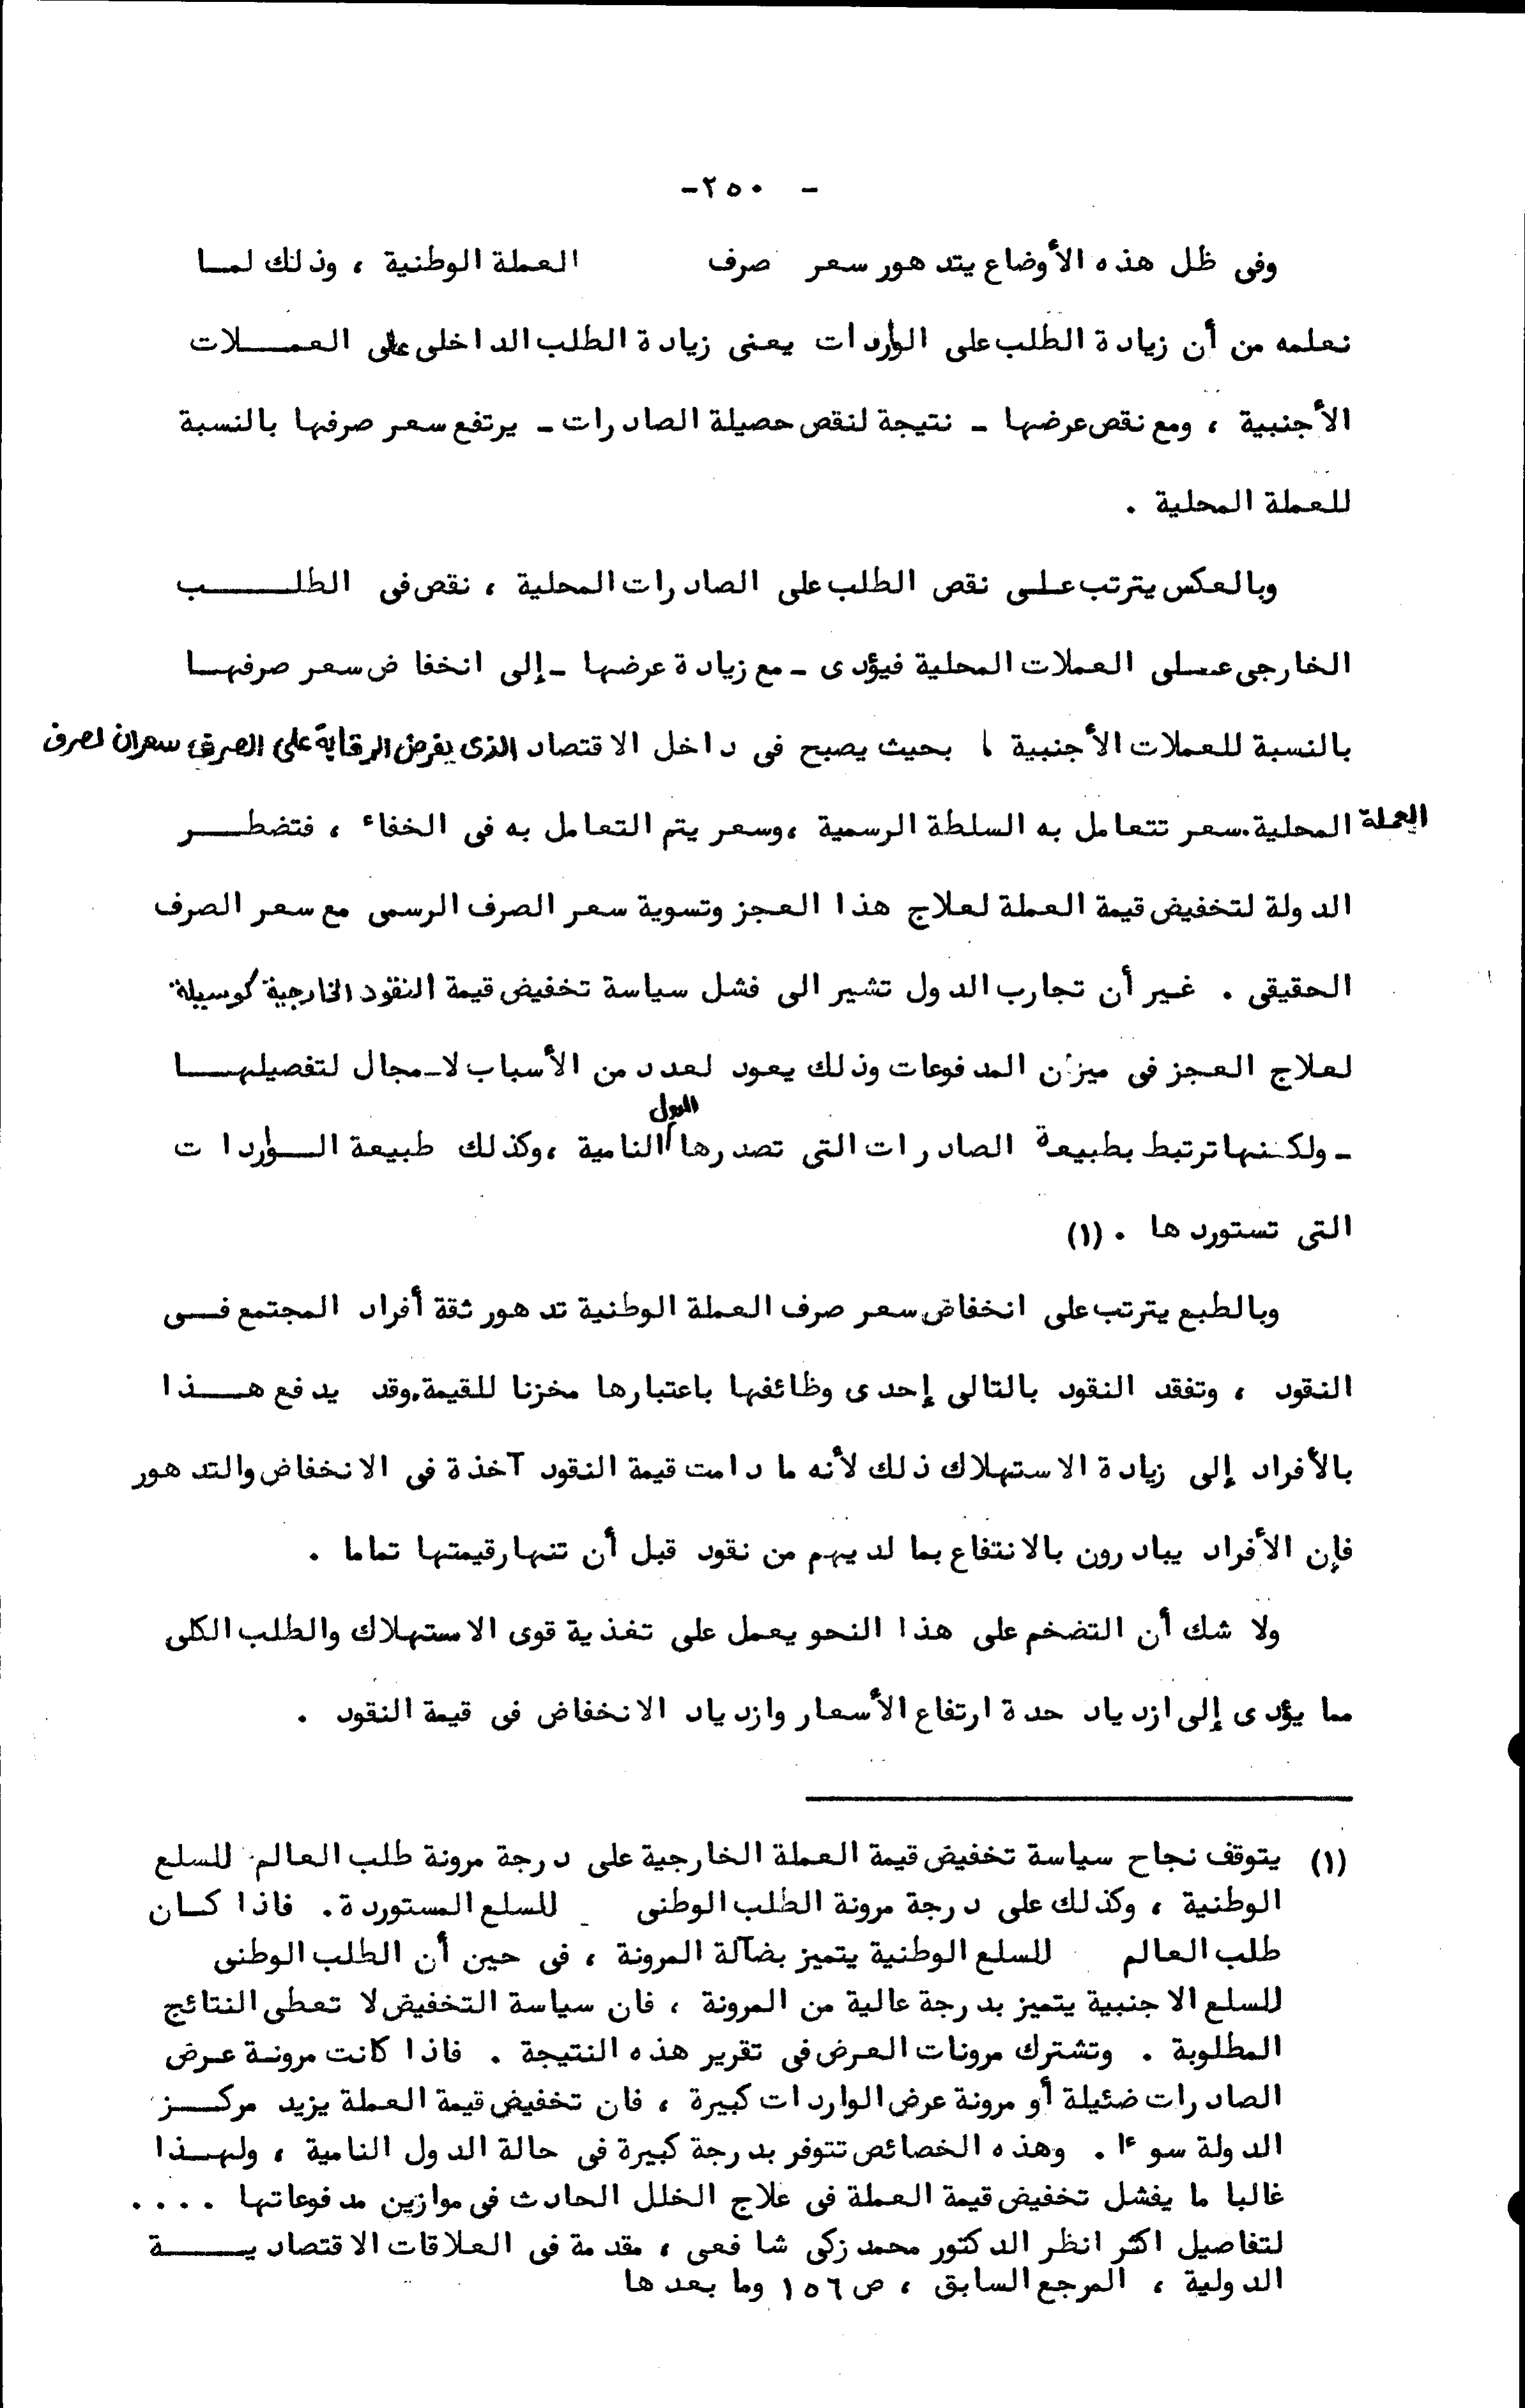 - ٢٥٠-
وفى ظل هذه الأوضاع يتدهور سعر صرف العملة الوطنية ، وذلك لمـا
نعلمه من أن زيادة الطلب على الواردات يعنى زيادة الطلب الداخلى على العمــلات
الأجنبية ، ومع نقص عرضها - نتيجة لنقص حصيلة الصادرات - يرتفع سعر صرفها بالنسبة
للعملة المحلية .
وبالعكس يترتب علـى نقص الطلب على الصادرات المحلية ، نقص فى الطلــــب
الخارجى عـلى العملات المحلية فيؤدى - مع زيادة عرضها - إلى انخفاض سعر صرفهــا
بالنسبة للعملات الأجنبية ، بحيث يصبح فى داخل الاقتصاد الذى يفرض الرقابة على الصرف سعران لصرف
العملة المحلية . سعر تتعامل به السلطة الرسمية ، وسعر يتم التعامل به فى الخفاء ، فتضطــر
الدولة لتخفيض قيمة العملة لعلاج هذا العجز وتسوية سعر الصرف الرسمى مع سعر الصرف
الحقيقى . غير أن تجارب الدول تشير الى فشل سياسة تخفيض قيمة النقود الخارجية كوسيلة
لعلاج العجز فى ميزان المدفوعات وذلك يعود لعدد من الأسباب لا مجال لتفصيلهــا
- ولكنها ترتبط بطبيعة الصادرات التى تصدرها الدول النامية ، وكذلك طبيعة الــواردات
التى تستوردها . (١)
وبالطبع يترتب على انخفاض سعر صرف العملة الوطنية تدهور ثقة أفراد المجتمع فــى
النقود ، وتفقد النقود بالتالى إحدى وظائفها باعتبارها مخزنا للقيمة . وقد يدفع هـــذا
بالأفراد إلى زيادة الاستهلاك ذلك لأنه ما دامت قيمة النقود آخذة فى الانخفاض والتدهور
فإن الأفراد يبادرون بالانتفاع بما لديهم من نقود قبل أن تنهار قيمتها تماما .
ولا شك أن التضخم على هذا النحو يعمل على تغذية قوى الاستهلاك والطلب الكلى
مما يؤدى إلى ازدياد حدة ارتفاع الأسعار وازدياد الانخفاض فى قيمة النقود .
(١) يتوقف نجاح سياسة تخفيض قيمة العملة الخارجية على درجة مرونة طلب العالم للسلع
الوطنية ، وكذلك على درجة مرونة الطلب الوطنى للسلع المستوردة . فاذا كـان
طلب العالم للسلع الوطنية يتميز بضآلة المرونة ، فى حين أن الطلب الوطنى
للسلع الاجنبية يتميز بدرجة عالية من المرونة ، فان سياسة التخفيض لا تعطى النتائج
المطلوبة . وتشترك مرونات العرض فى تقرير هذه النتيجة . فاذا كانت مرونـة عـرض
الصادرات ضئيلة أو مرونة عرض الواردات كبيرة ، فان تخفيض قيمة العملة يزيد مركــز
الدولة سوءا . وهذه الخصائص تتوفر بدرجة كبيرة فى حالة الدول النامية ، ولهــذا
غالبا ما يفشل تخفيض قيمة العملة فى علاج الخلل الحادث فى موازين مدفوعاتها . . . .
لتفاصيل اكثر انظر الدكتور محمد زكى شافعى ، مقدمة فى العلاقات الاقتصاديــــة
الدولية ، المرجع السابق ، ص ١٥٦ وما بعدها